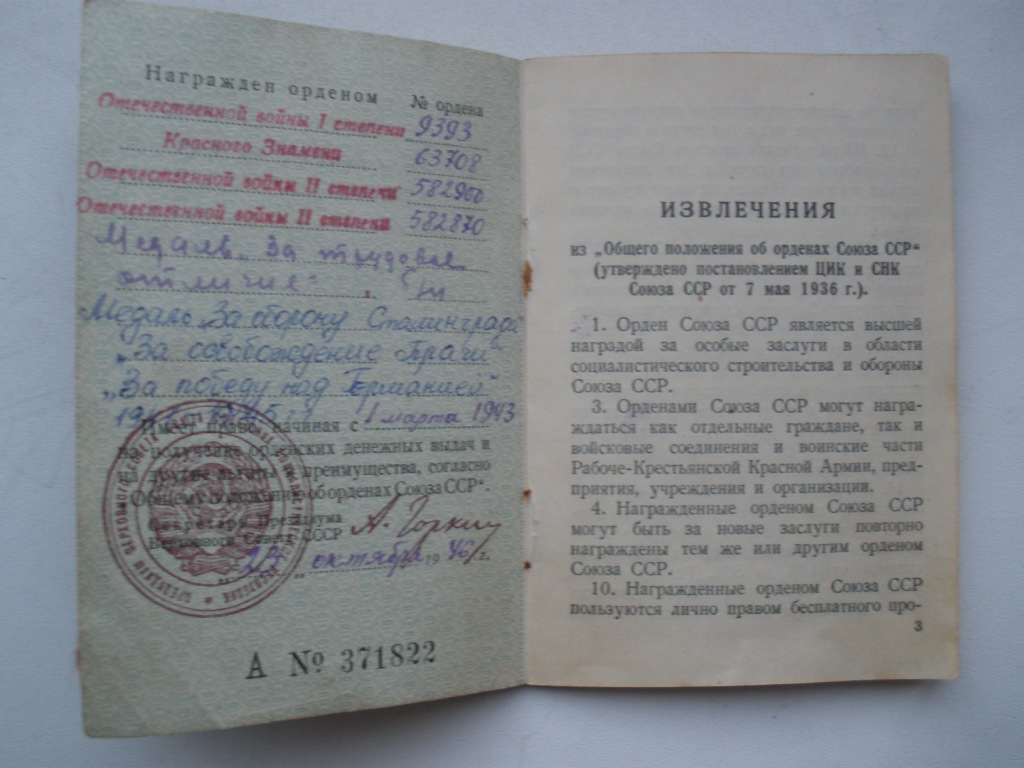 Награжден орденом № ордена
Отечественной войны I степени 9393
Красного Знамени 63708
Отечественной войны II степени 582900
Отечественной войны II степени 582870
Медаль „За трудовое
отличие"
Медаль „За оборону Сталинграда"
„За освобождение Праги"
„За победу над Германией"
Имеет право, начиная с 1 марта 1943
на получение орденских денежных выдач и
другие льготы и преимущества, согласно
„Общему положению об орденах Союза ССР".
Секретарь Президиума
Верховного Совета СССР А. Горкин
„23" октября 1946 г.
А № 371822
ИЗВЛЕЧЕНИЯ
из „Общего положения об орденах Союза ССР"
(утверждено постановлением ЦИК и СНК
Союза ССР от 7 мая 1936 г.).
1. Орден Союза ССР является высшей
наградой за особые заслуги в области
социалистического строительства и обороны
Союза ССР.
3. Орденами Союза ССР могут награ-
ждаться как отдельные граждане, так и
войсковые соединения и воинские части
Рабоче-Крестьянской Красной Армии, пред-
приятия, учреждения и организации.
4. Награжденные орденом Союза ССР
могут быть за новые заслуги повторно
награждены тем же или другим орденом
Союза ССР.
10. Награжденные орденом Союза ССР
пользуются лично правом бесплатного про-
3